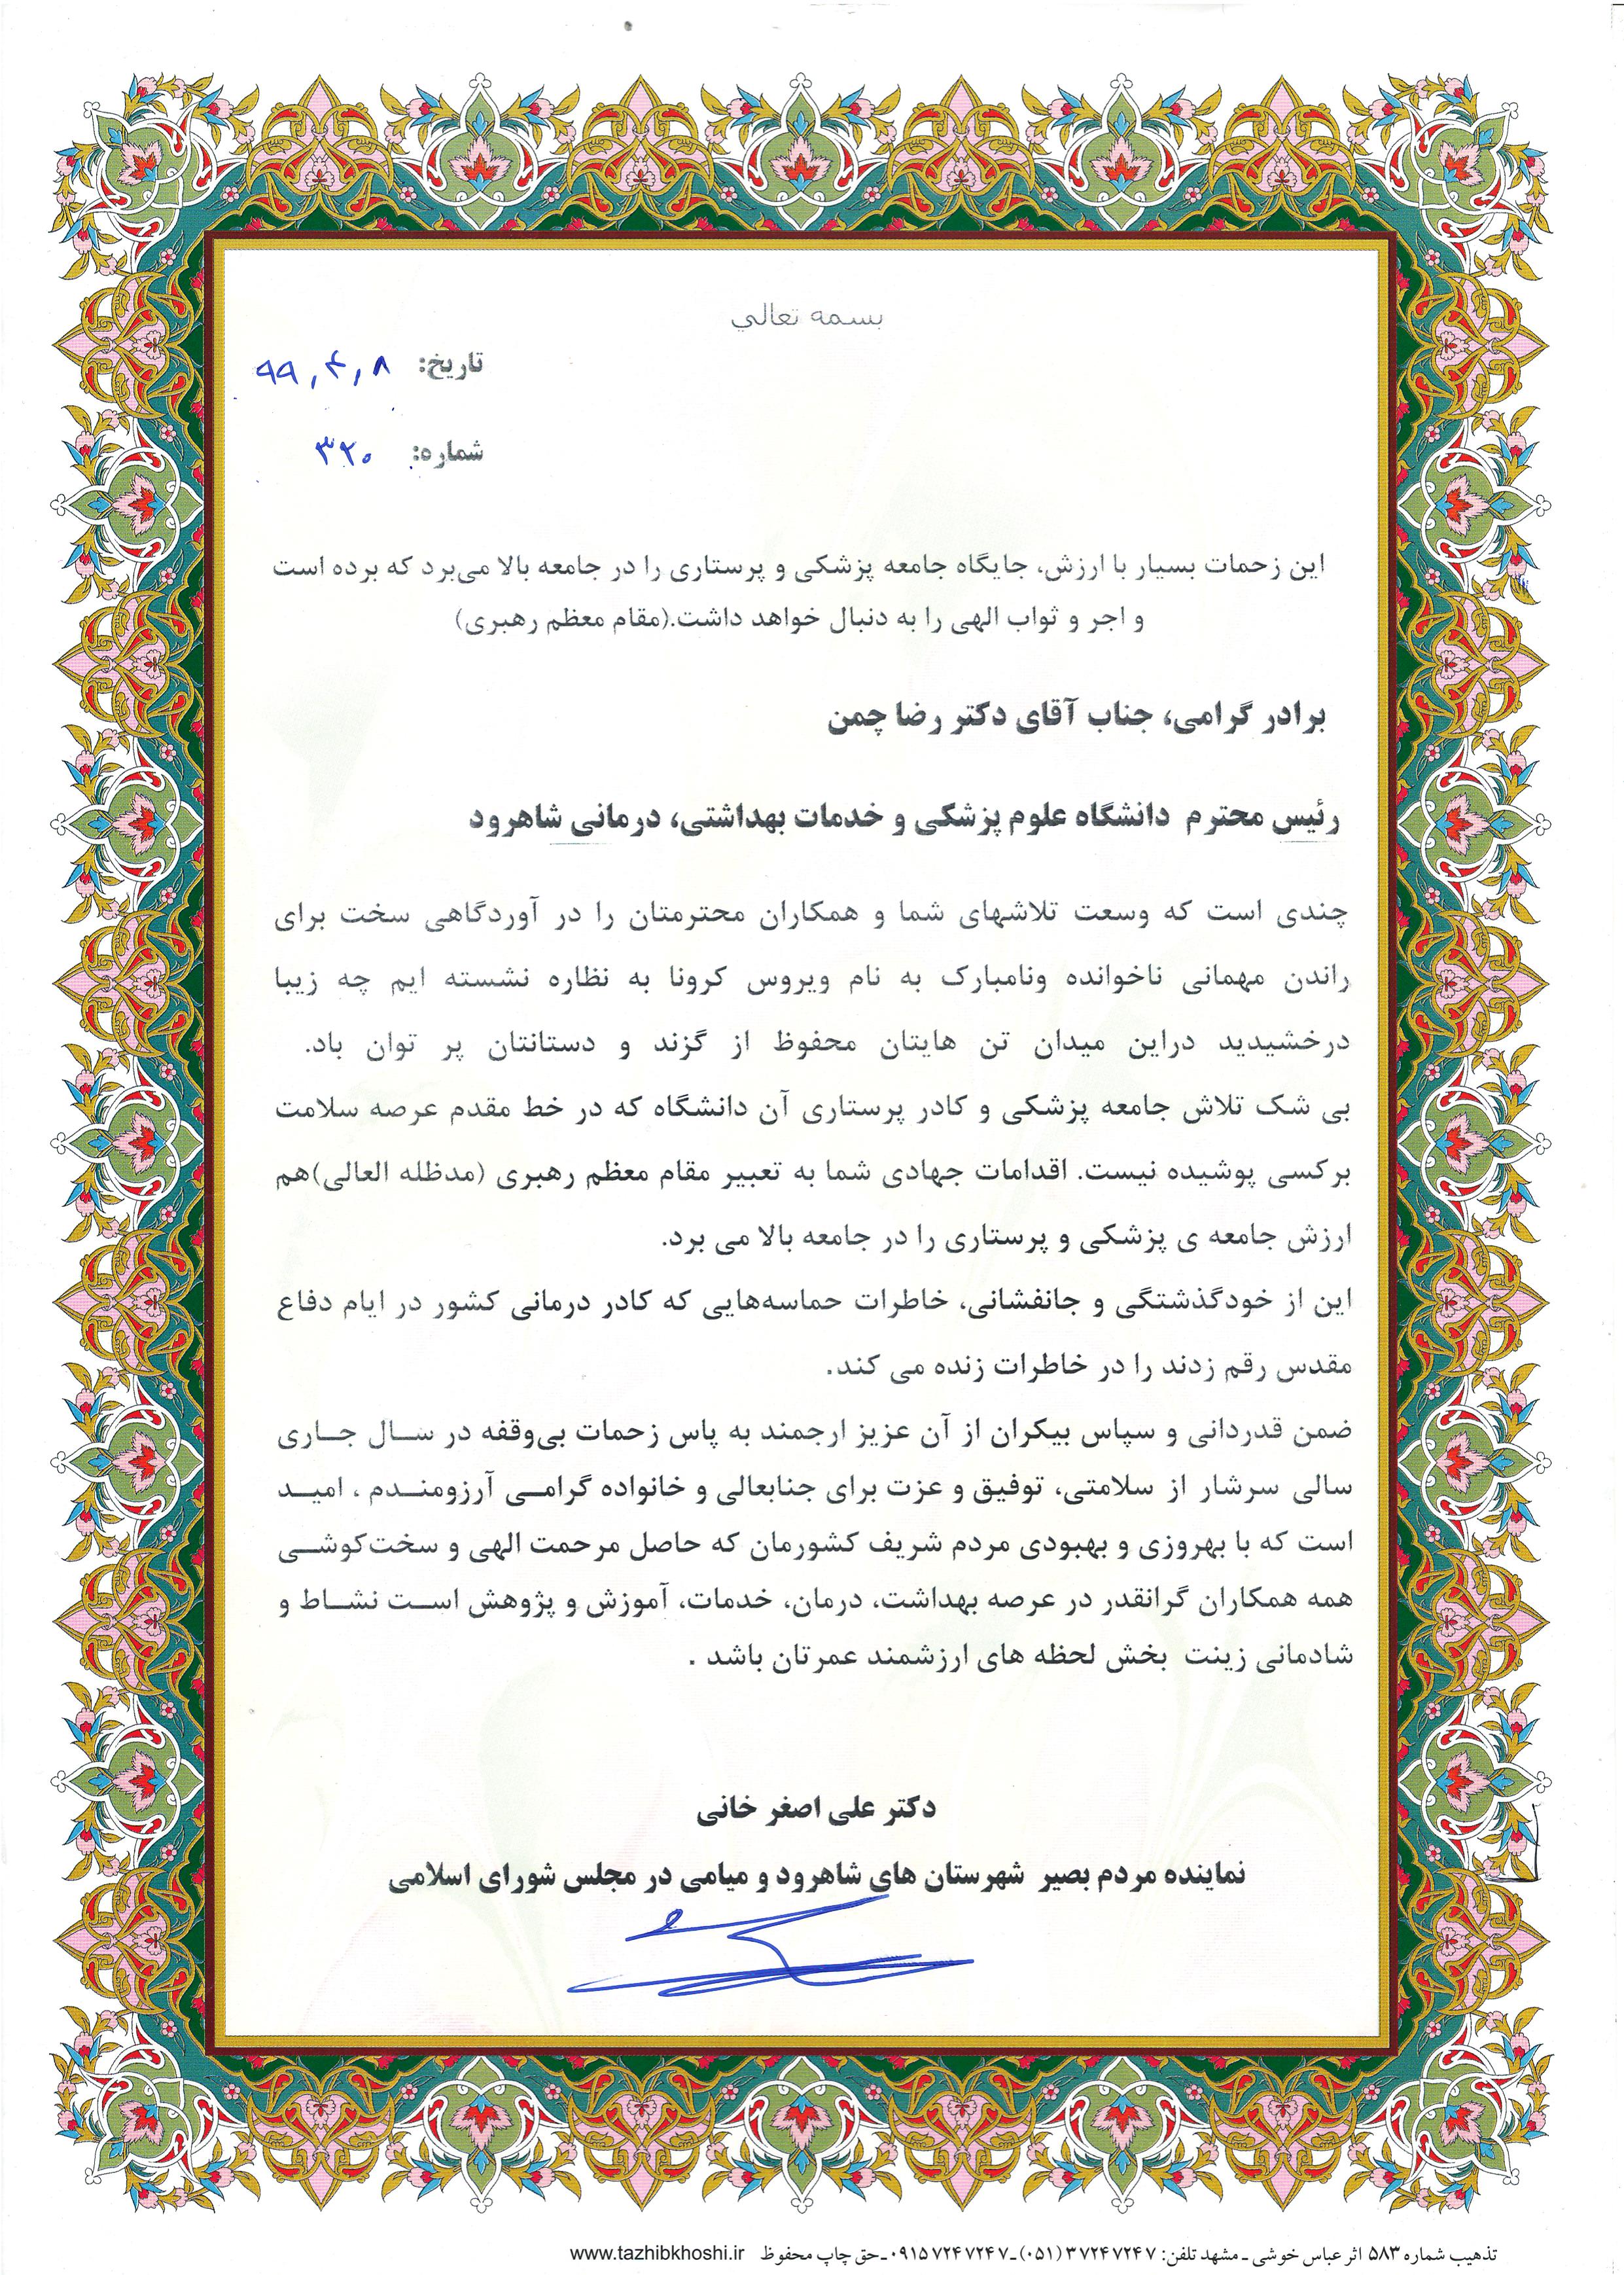 بسمه تعالي
تاریخ: ۹۹,۴,۸
شماره: ۳۲۰
این زحمات بسیار با ارزش، جایگاه جامعه پزشکی و پرستاری را در جامعه بالا می‌برد که برده است
و اجر و ثواب الهی را به دنبال خواهد داشت.(مقام معظم رهبری)
برادر گرامی، جناب آقای دکتر رضا چمن
رئیس محترم دانشگاه علوم پزشکی و خدمات بهداشتی، درمانی شاهرود
چندی است که وسعت تلاشهای شما و همکاران محترمتان را در آوردگاهی سخت برای
راندن مهمانی ناخوانده ونامبارک به نام ویروس کرونا به نظاره نشسته ایم چه زیبا
درخشیدید دراین میدان تن هایتان محفوظ از گزند و دستانتان پر توان باد.
بی شک تلاش جامعه پزشکی و کادر پرستاری آن دانشگاه که در خط مقدم عرصه سلامت
برکسی پوشیده نیست. اقدامات جهادی شما به تعبیر مقام معظم رهبری (مدظله العالی)هم
ارزش جامعه ی پزشکی و پرستاری را در جامعه بالا می برد.
این از خودگذشتگی و جانفشانی، خاطرات حماسه‌هایی که کادر درمانی کشور در ایام دفاع
مقدس رقم زدند را در خاطرات زنده می کند.
ضمن قدردانی و سپاس بیکران از آن عزیز ارجمند به پاس زحمات بی‌وقفه در سال جاری
سالی سرشار از سلامتی، توفیق و عزت برای جنابعالی و خانواده گرامی آرزومندم ، امید
است که با بهروزی و بهبودی مردم شریف کشورمان که حاصل مرحمت الهی و سخت‌کوشی
همه همکاران گرانقدر در عرصه بهداشت، درمان، خدمات، آموزش و پژوهش است نشاط و
شادمانی زینت بخش لحظه های ارزشمند عمرتان باشد .
دکتر علی اصغر خانی
نماینده مردم بصیر شهرستان های شاهرود و میامی در مجلس شورای اسلامی
تذهیب شماره ۵۸۳ اثر عباس خوشی ـ مشهد تلفن: ۳۷۲۴۷۲۴۷ (۰۵۱) ـ ۰۹۱۵۷۲۴۷۲۴۷ ـ حق چاپ محفوظ www.tazhibkhoshi.ir